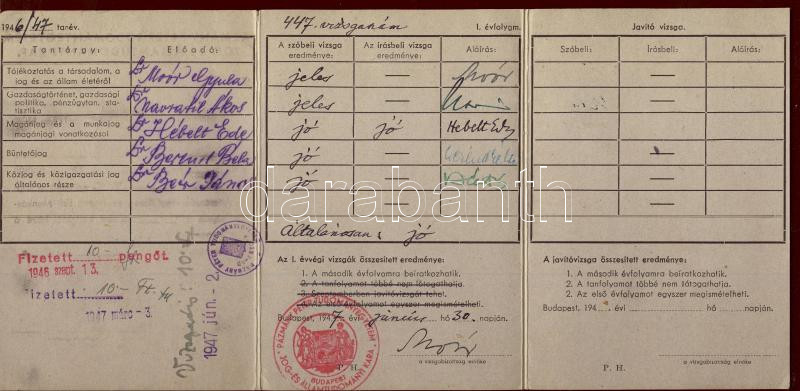 1946/47 tanév.
Tantárgy:
Előadó:
Tájékoztatás a társadalom, a
jog és az állam életéről
Dr Moór Gyula
Gazdaságtörténet, gazdasági
politika, pénzügytan, sta-
tisztika
Dr Navratil Ákos
Magánjog és a munkajog
magánjogi vonatkozásai
Dr Hébelt Ede
Büntetőjog
Dr
Béla
Közjog és közigazgatási jog
általános része
Dr Beér János
Fizetett 10- pengőt.
1946 szept. 13.
Fizetett: 10-Ft
1947 márc - 3.
1947 jún. - 2
447. vizsgaszám
I. évfolyam.
A szóbeli vizsga
eredménye:
Az írásbeli vizsga
eredménye:
Aláírás:
jeles — Moór
jeles —
jó jó Hebelt Ede
jó —
jó —
Általánosan: jó
Az I. évvégi vizsgák összesített eredménye:
1. A második évfolyamra beíratkozhatik.
2. A tanfolyamot többé nem látogathatja.
3. Szeptemberben javítóvizsgát tehet.
4. Az első évfolyamot egyszer megismételheti.
Budapest, 1947 évi június hó 30. napján.
Moór
a vizsgabizottság elnöke
PÁZMÁNY PÉTER TUDOMÁNYEGYETEM
JOG- ÉS ÁLLAMTUDOMÁNYI KARA
BUDAPEST
Javító vizsga.
Szóbeli:
Írásbeli:
Aláírás:
—
—
—
—
—
A javítóvizsga összesített eredménye:
1. A második évfolyamra beíratkozhatik.
2. A tanfolyamot többé nem látogathatja.
2. Az első évfolyamot egyszer megismételheti.
Budapest, 194 évi hó napján.
P. H.
a vizsgabizottság elnöke
darabanth